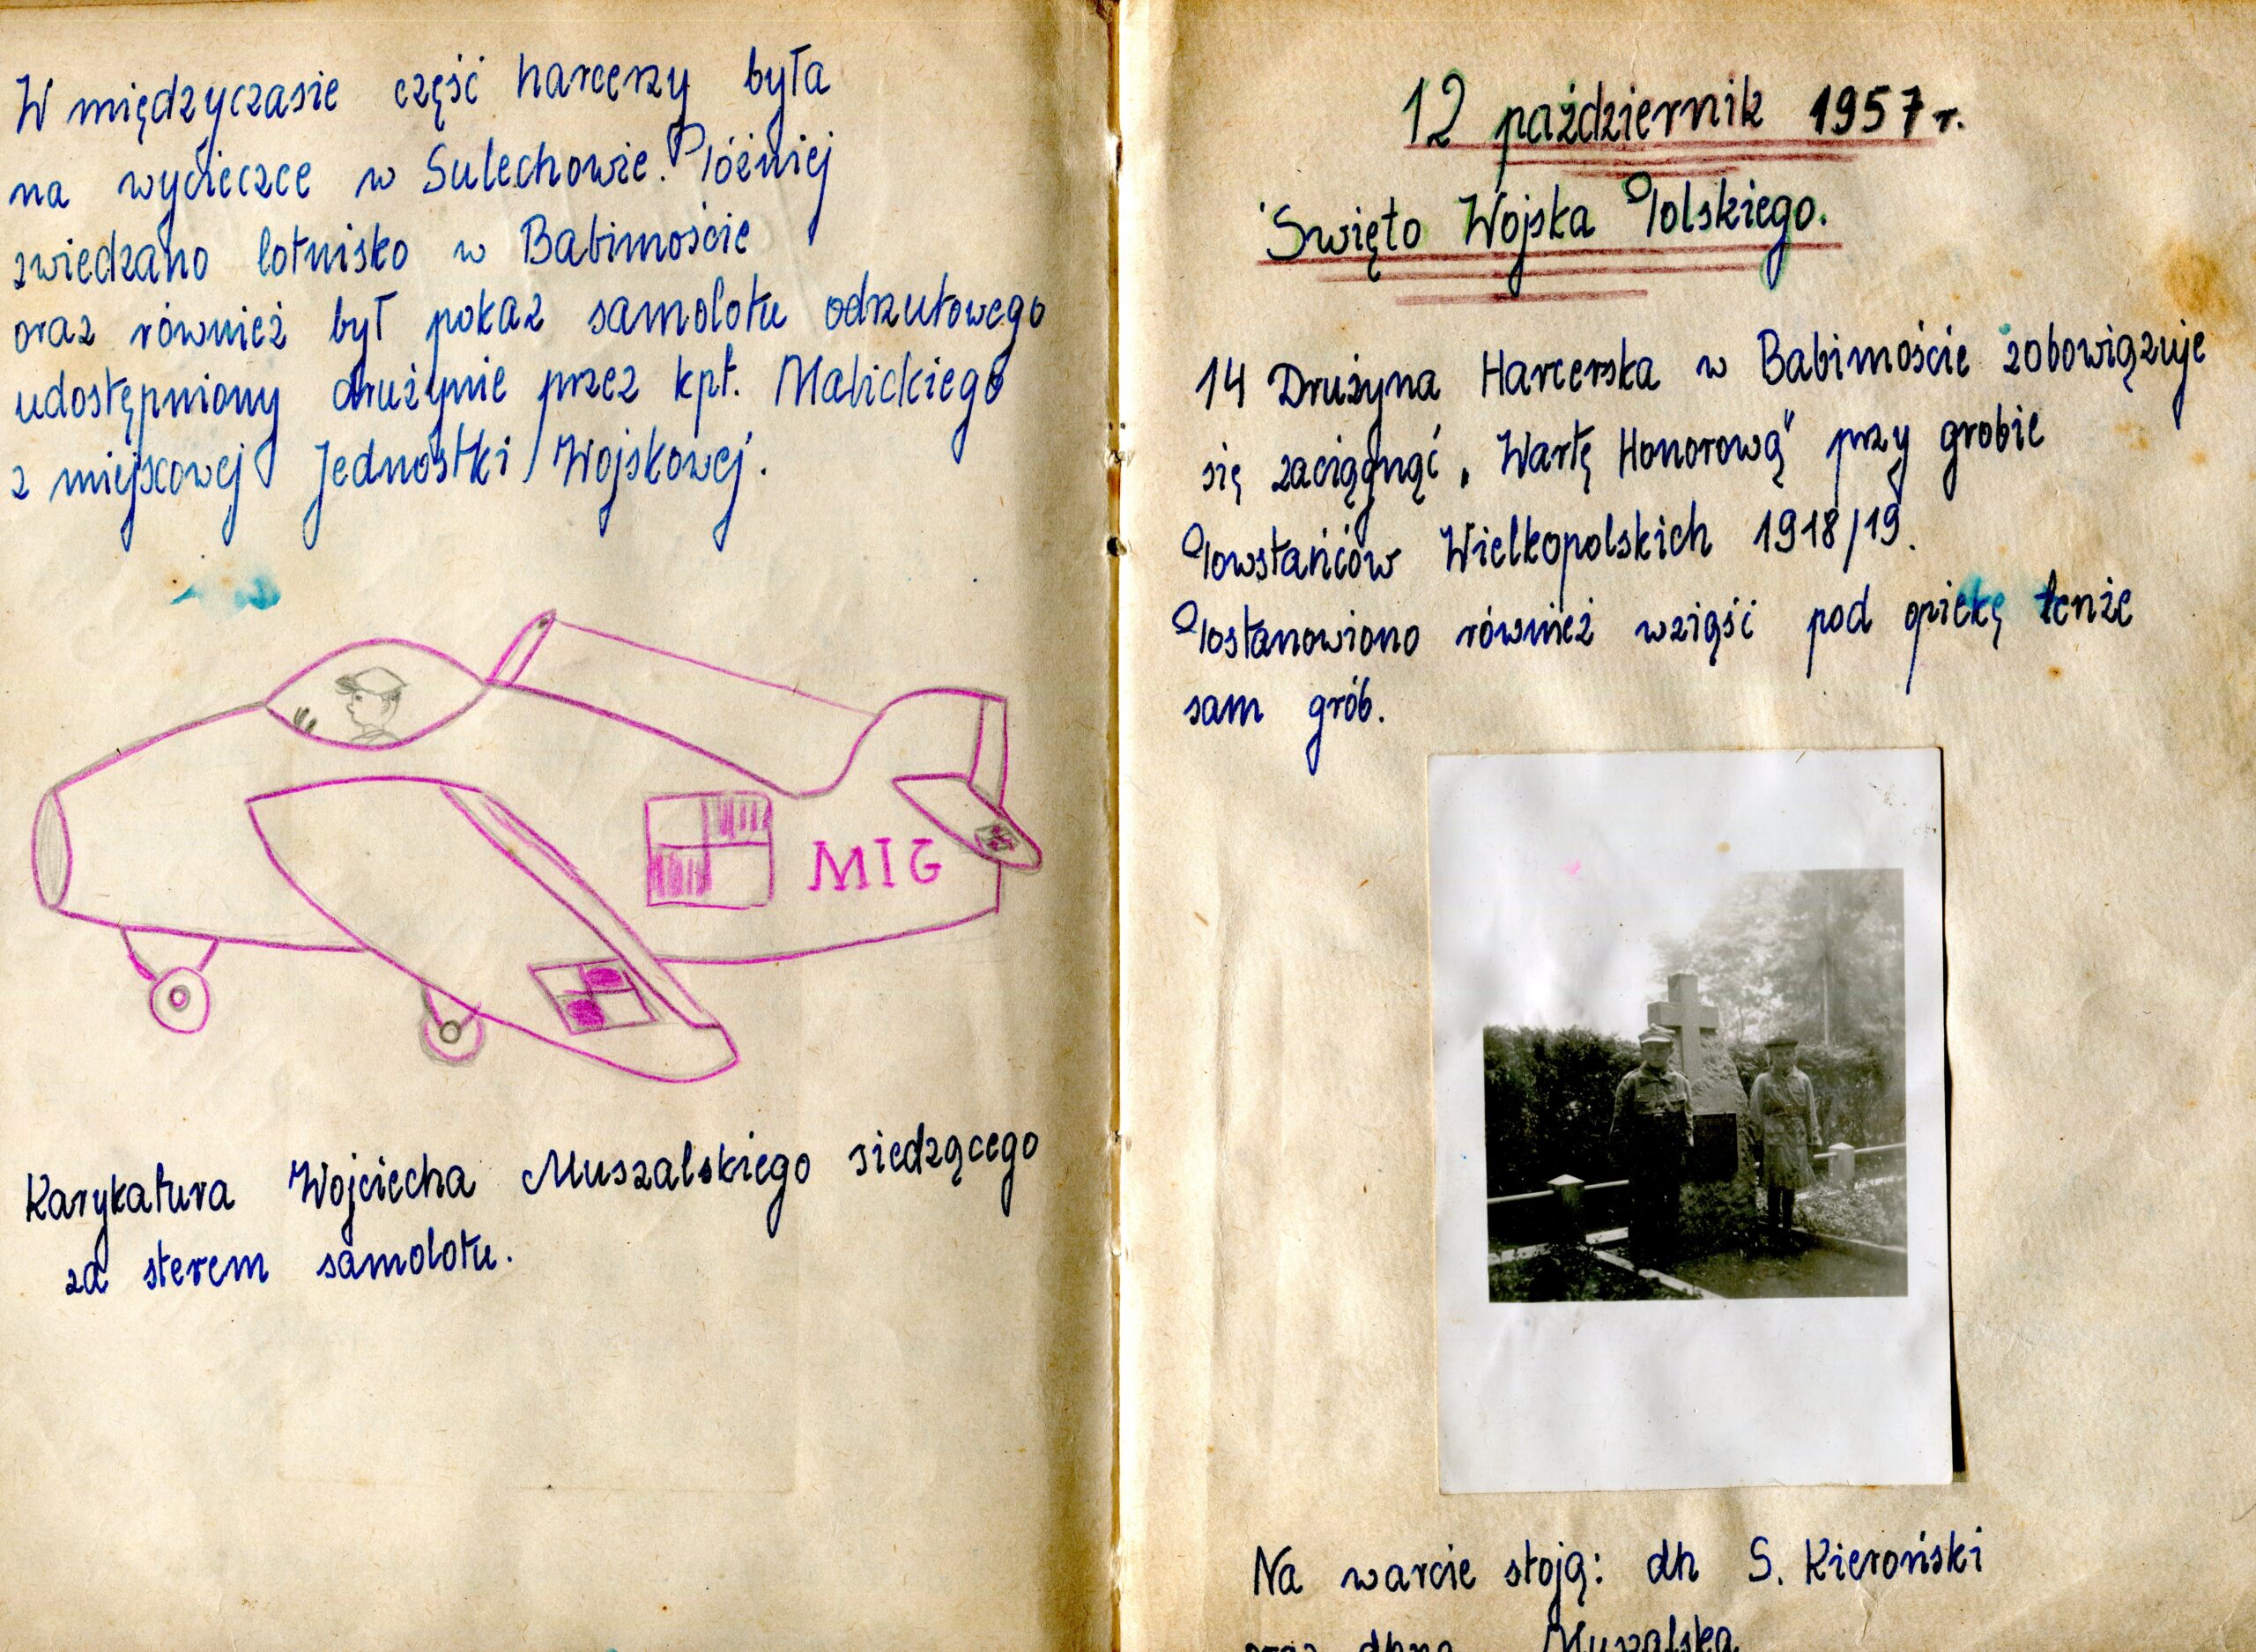 W międzyczasie część harcerzy była
na wycieczce w Sulechowie. Później
zwiedzano lotnisko w Babimoście
oraz również był pokaz samolotu odrzutowego
udostępniony drużynie przez kpt. Malickiego
z miejscowej Jednostki Wojskowej.
MIG
Karykatura Wojciecha Muszalskiego siedzącego
za sterem samolotu.
12 październik 1957 r.
Święto Wojska Polskiego.
14 Drużyna Harcerska w Babimoście zobowiązuje
się zaciągnąć „Wartę Honorową" przy grobie
Powstańców Wielkopolskich 1918/19.
Postanowiono również wziąść pod opiekę tenże
sam grób.
Na warcie stoją: dh S. Kieroński
oraz dhna Muszalska